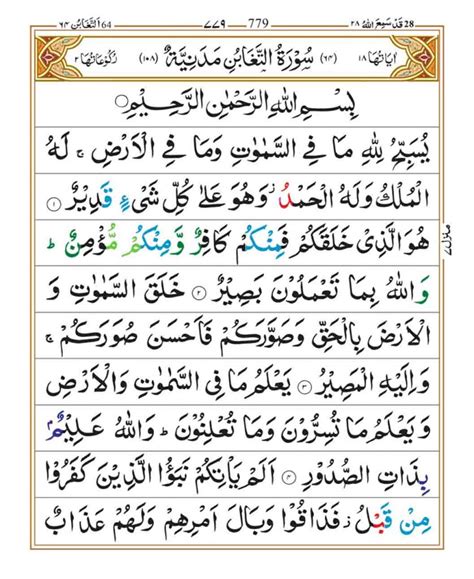 28 قد سمع الله ۲۸ 779 ۷۷۹ 64 التغابن ۶۴
اٰیاتہا ۱۸ (۶۴) سُوْرَةُ التَّغَابُنِ مَدَنِيَّةٌ (۱۰۸) رکوعاتہا ۲
بِسْمِ اللّٰهِ الرَّحْمٰنِ الرَّحِيْمِ
يُسَبِّحُ لِلّٰهِ مَا فِي السَّمٰوٰتِ وَمَا فِي الْاَرْضِ ۚ لَهُ
الْمُلْكُ وَلَهُ الْحَمْدُ ۫ وَهُوَ عَلٰى كُلِّ شَيْءٍ قَدِيْرٌ ۱
هُوَ الَّذِيْ خَلَقَكُمْ فَمِنْكُمْ كَافِرٌ وَّمِنْكُمْ مُّؤْمِنٌ ؕ
وَاللّٰهُ بِمَا تَعْمَلُوْنَ بَصِيْرٌ ۲ خَلَقَ السَّمٰوٰتِ وَ
الْاَرْضَ بِالْحَقِّ وَصَوَّرَكُمْ فَاَحْسَنَ صُوَرَكُمْ ۚ
وَاِلَيْهِ الْمَصِيْرُ ۳ يَعْلَمُ مَا فِي السَّمٰوٰتِ وَالْاَرْضِ
وَيَعْلَمُ مَا تُسِرُّوْنَ وَمَا تُعْلِنُوْنَ ؕ وَاللّٰهُ عَلِيْمٌۢ
بِذَاتِ الصُّدُوْرِ ۴ اَلَمْ يَاْتِكُمْ نَبَؤُا الَّذِيْنَ كَفَرُوْا
مِنْ قَبْلُ ۫ فَذَاقُوْا وَبَالَ اَمْرِهِمْ وَلَهُمْ عَذَابٌ
منزل ۷